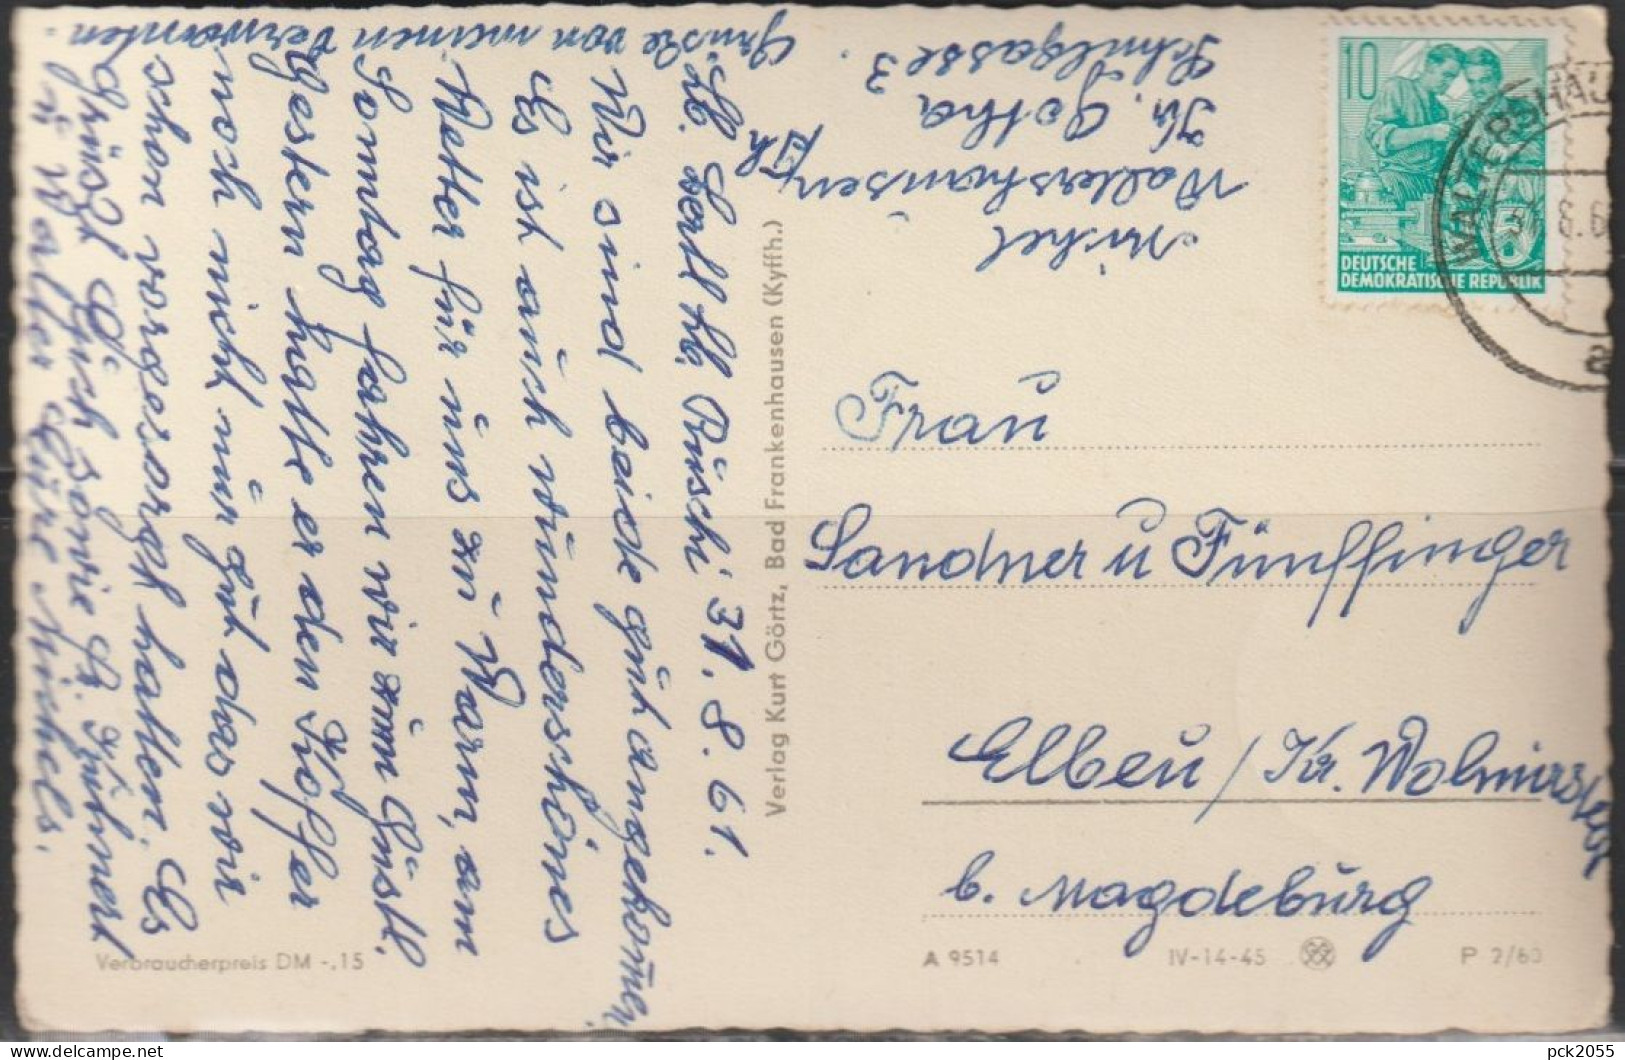 Grüße von meinen Verwanten.
Lb. Gertl. Lb. Rüschi 31.8.61.
Wir sind beide gut angekommen.
Es ist auch wunderschönes
Wetter für uns zu Warm, am
Sonntag fahren wir zum Güstl.
Gestern hatte er den Koffer
noch nicht nur gut das wir
schon vorgesorgt hatten. Es
Grüßt Euch sowie
u Walter Eure Michels.
Michel
Waltershausen/Th
Kr. Gotha
Schulgasse 3
Verlag Kurt Görtz, Bad Frankenhausen (Kyffh.)
10
DEUTSCHE
DEMOKRATISCHE REPUBLIK
WALTERSHAU
31.8.6
Frau
Sandner u Fünffinger
Elbeu / Kr. Wolmirstedt
b. Magdeburg
Verbraucherpreis DM -.15
A 9514
IV-14-45
P 2/60
pck2055
delcampe.net